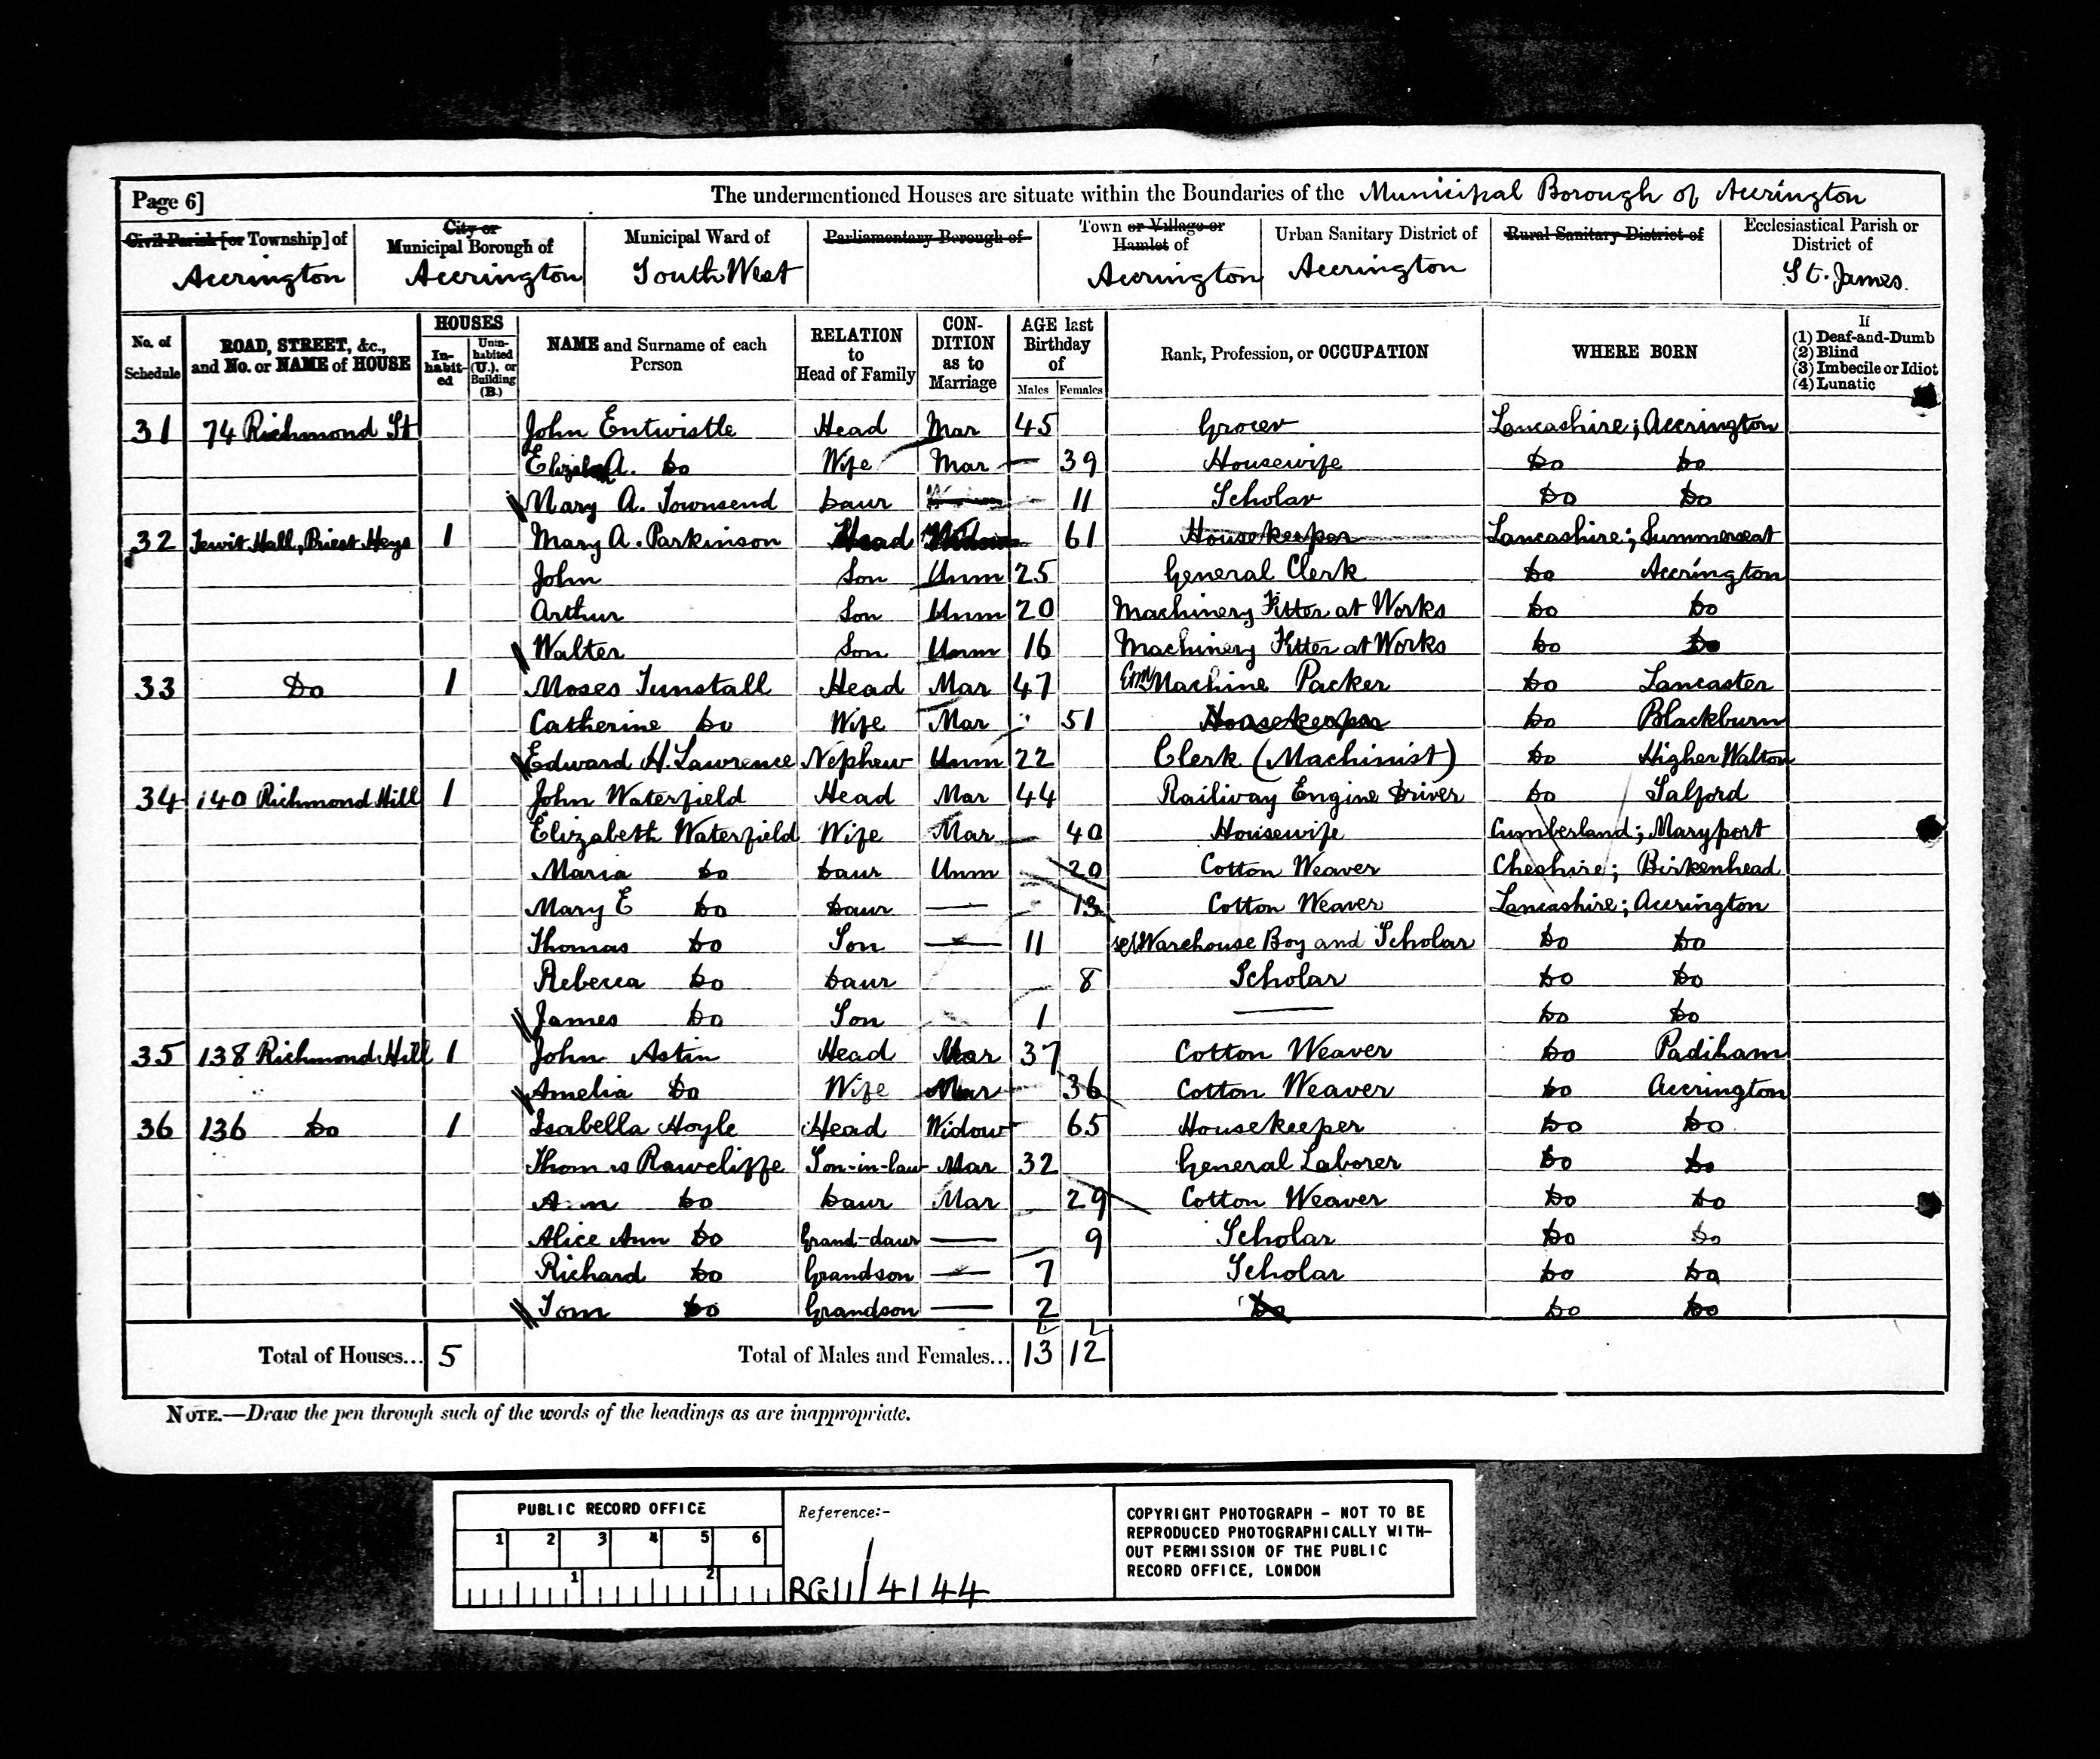 Page 6] The undermentioned Houses are situate within the Boundaries of the Municipal Borough of Accrington
Civil Parish [or Township] of
Accrington
City or Municipal Borough of
Accrington
Municipal Ward of
South West
Parliamentary Borough of
Town or Village or Hamlet of
Accrington
Urban Sanitary District of
Accrington
Rural Sanitary District of
Ecclesiastical Parish or District of
St. James
No. of Schedule
ROAD, STREET, &c., and No. or NAME of HOUSE
HOUSES
In-habit-ed
Unin-habited (U.), or Building (B.)
NAME and Surname of each Person
RELATION to Head of Family
CON-DITION as to Marriage
AGE last Birthday of
Males Females
Rank, Profession, or OCCUPATION
WHERE BORN
If
(1) Deaf-and-Dumb
(2) Blind
(3) Imbecile or Idiot
(4) Lunatic
31 74 Richmond St John Entwistle Head Mar 45 Grocer Lancashire; Accrington
A. Do Wife Mar 39 Housewife Do Do
Mary A. Townsend Daur 11 Scholar Do Do
32 Tewit Hall, Priest Heys 1 Mary A. Parkinson Head Widow 61 Housekeeper Lancashire; Summerseat
John Son Unm 25 General Clerk Do Accrington
Arthur Son Unm 20 Machinery Fitter at Works Do Do
Walter Son Unm 16 Machinery Fitter at Works Do Do
33 Do 1 Moses Tunstall Head Mar 47 Machine Packer Do Lancaster
Catherine Do Wife Mar 51 Housekeeper Do Blackburn
Edward H. Lawrence Nephew Unm 22 Clerk (Machinist) Do Higher Walton
34 140 Richmond Hill 1 John Waterfield Head Mar 44 Railway Engine Driver Do Salford
Elizabeth Waterfield Wife Mar 40 Housewife Cumberland; Maryport
Maria Do Daur Unm 20 Cotton Weaver Cheshire; Birkenhead
Mary E Do Daur — 13 Cotton Weaver Lancashire; Accrington
Thomas Do Son — 11 Warehouse Boy and Scholar Do Do
Rebecca Do Daur 8 Scholar Do Do
James Do Son 1 — Do Do
35 138 Richmond Hill 1 John Astin Head Mar 37 Cotton Weaver Do Padiham
Amelia Do Wife Mar 36 Cotton Weaver Do Accrington
36 136 Do 1 Isabella Hoyle Head Widow 65 Housekeeper Do Do
Thomas Rawcliffe Son-in-law Mar 32 General Laborer Do Do
Ann Do Daur Mar 29 Cotton Weaver Do Do
Alice Ann Do Grand-daur — 9 Scholar Do Do
Richard Do Grandson — 7 Scholar Do Do
Tom Do Grandson — 2 Do Do Do
Total of Houses... 5 Total of Males and Females... 13 12
NOTE.—Draw the pen through such of the words of the headings as are inappropriate.
PUBLIC RECORD OFFICE
1 2 3 4 5 6
1 2
Reference:-
RG11/4144
COPYRIGHT PHOTOGRAPH - NOT TO BE
REPRODUCED PHOTOGRAPHICALLY WITH-
OUT PERMISSION OF THE PUBLIC
RECORD OFFICE, LONDON